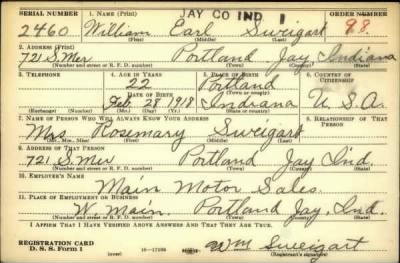 JAY CO IND 1
SERIAL NUMBER 1. NAME (Print) ORDER NUMBER
2460 William Earl Sweigart 98.
(First) (Middle) (Last)
2. ADDRESS (Print)
721 S. Mer Portland Jay Indiana
(Number and street or R. F. D. number) (Town) (County) (State)
3. TELEPHONE 4. AGE IN YEARS 5. PLACE OF BIRTH 6. COUNTRY OF CITIZENSHIP
22 Portland
DATE OF BIRTH (Town or county)
Feb. 28 1918 Indiana U.S.A.
(Exchange) (Number) (Mo.) (Day) (Yr.) (State or country)
7. NAME OF PERSON WHO WILL ALWAYS KNOW YOUR ADDRESS 8. RELATIONSHIP OF THAT PERSON
Mrs Rosemary Sweigart
(Mr., Mrs., Miss) (First) (Middle) (Last)
9. ADDRESS OF THAT PERSON
721 S. Mer Portland Jay Ind.
(Number and street or R. F. D. number) (Town) (County) (State)
10. EMPLOYER'S NAME
Main Motor Sales.
11. PLACE OF EMPLOYMENT OR BUSINESS
W. Main. Portland Jay, Ind.
(Number and street or R. F. D. number) (Town) (County) (State)
I AFFIRM THAT I HAVE VERIFIED ABOVE ANSWERS AND THAT THEY ARE TRUE.
REGISTRATION CARD
D. S. S. FORM 1 16—17105 Wm Sweigart